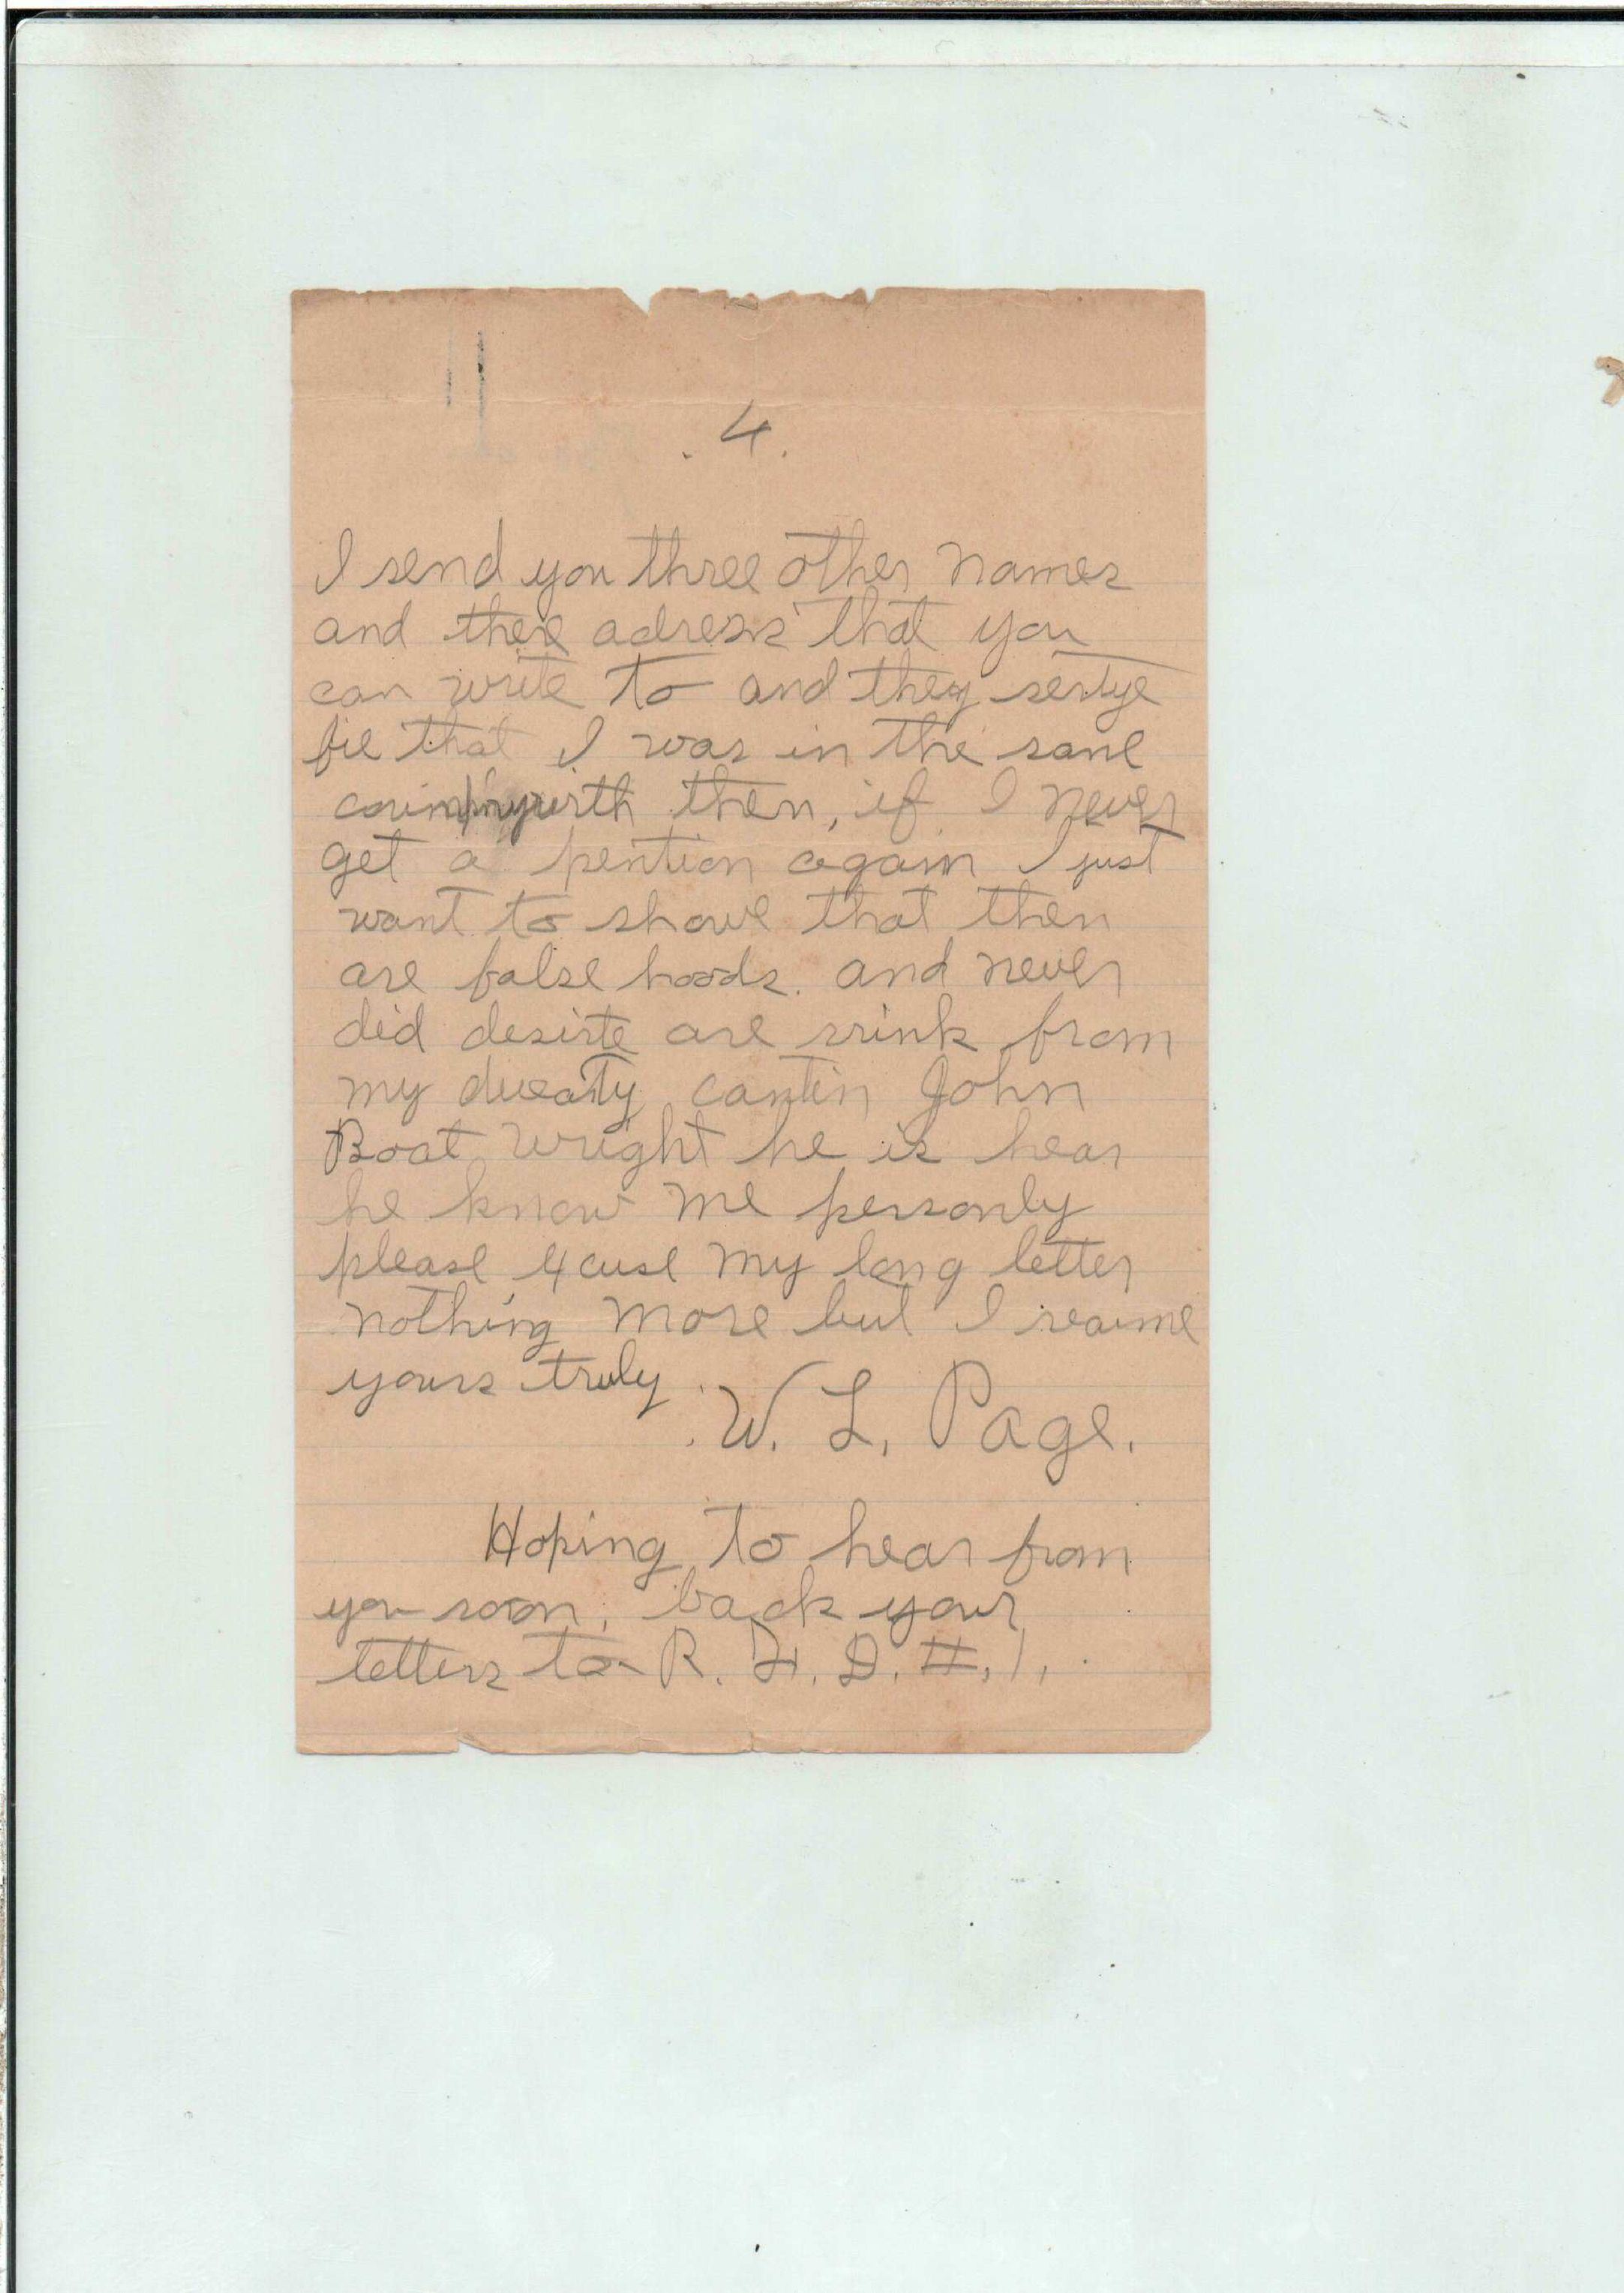 . 4 .
I send you three other names
and there adress that you
can write to and they sertye
fie that I was in the same
with then, if I never
get a pention again I just
want to showe that then
are false hoods. and never
did desirte are srink from
my dueaty cantin John
Boat wright he is hear
he know me personly
please excuse my long letter
nothing more but I reaime
yours truly.
. W. L. Page.
Hoping to hear from
you soon, back your
letters to R. F. D. #. 1.